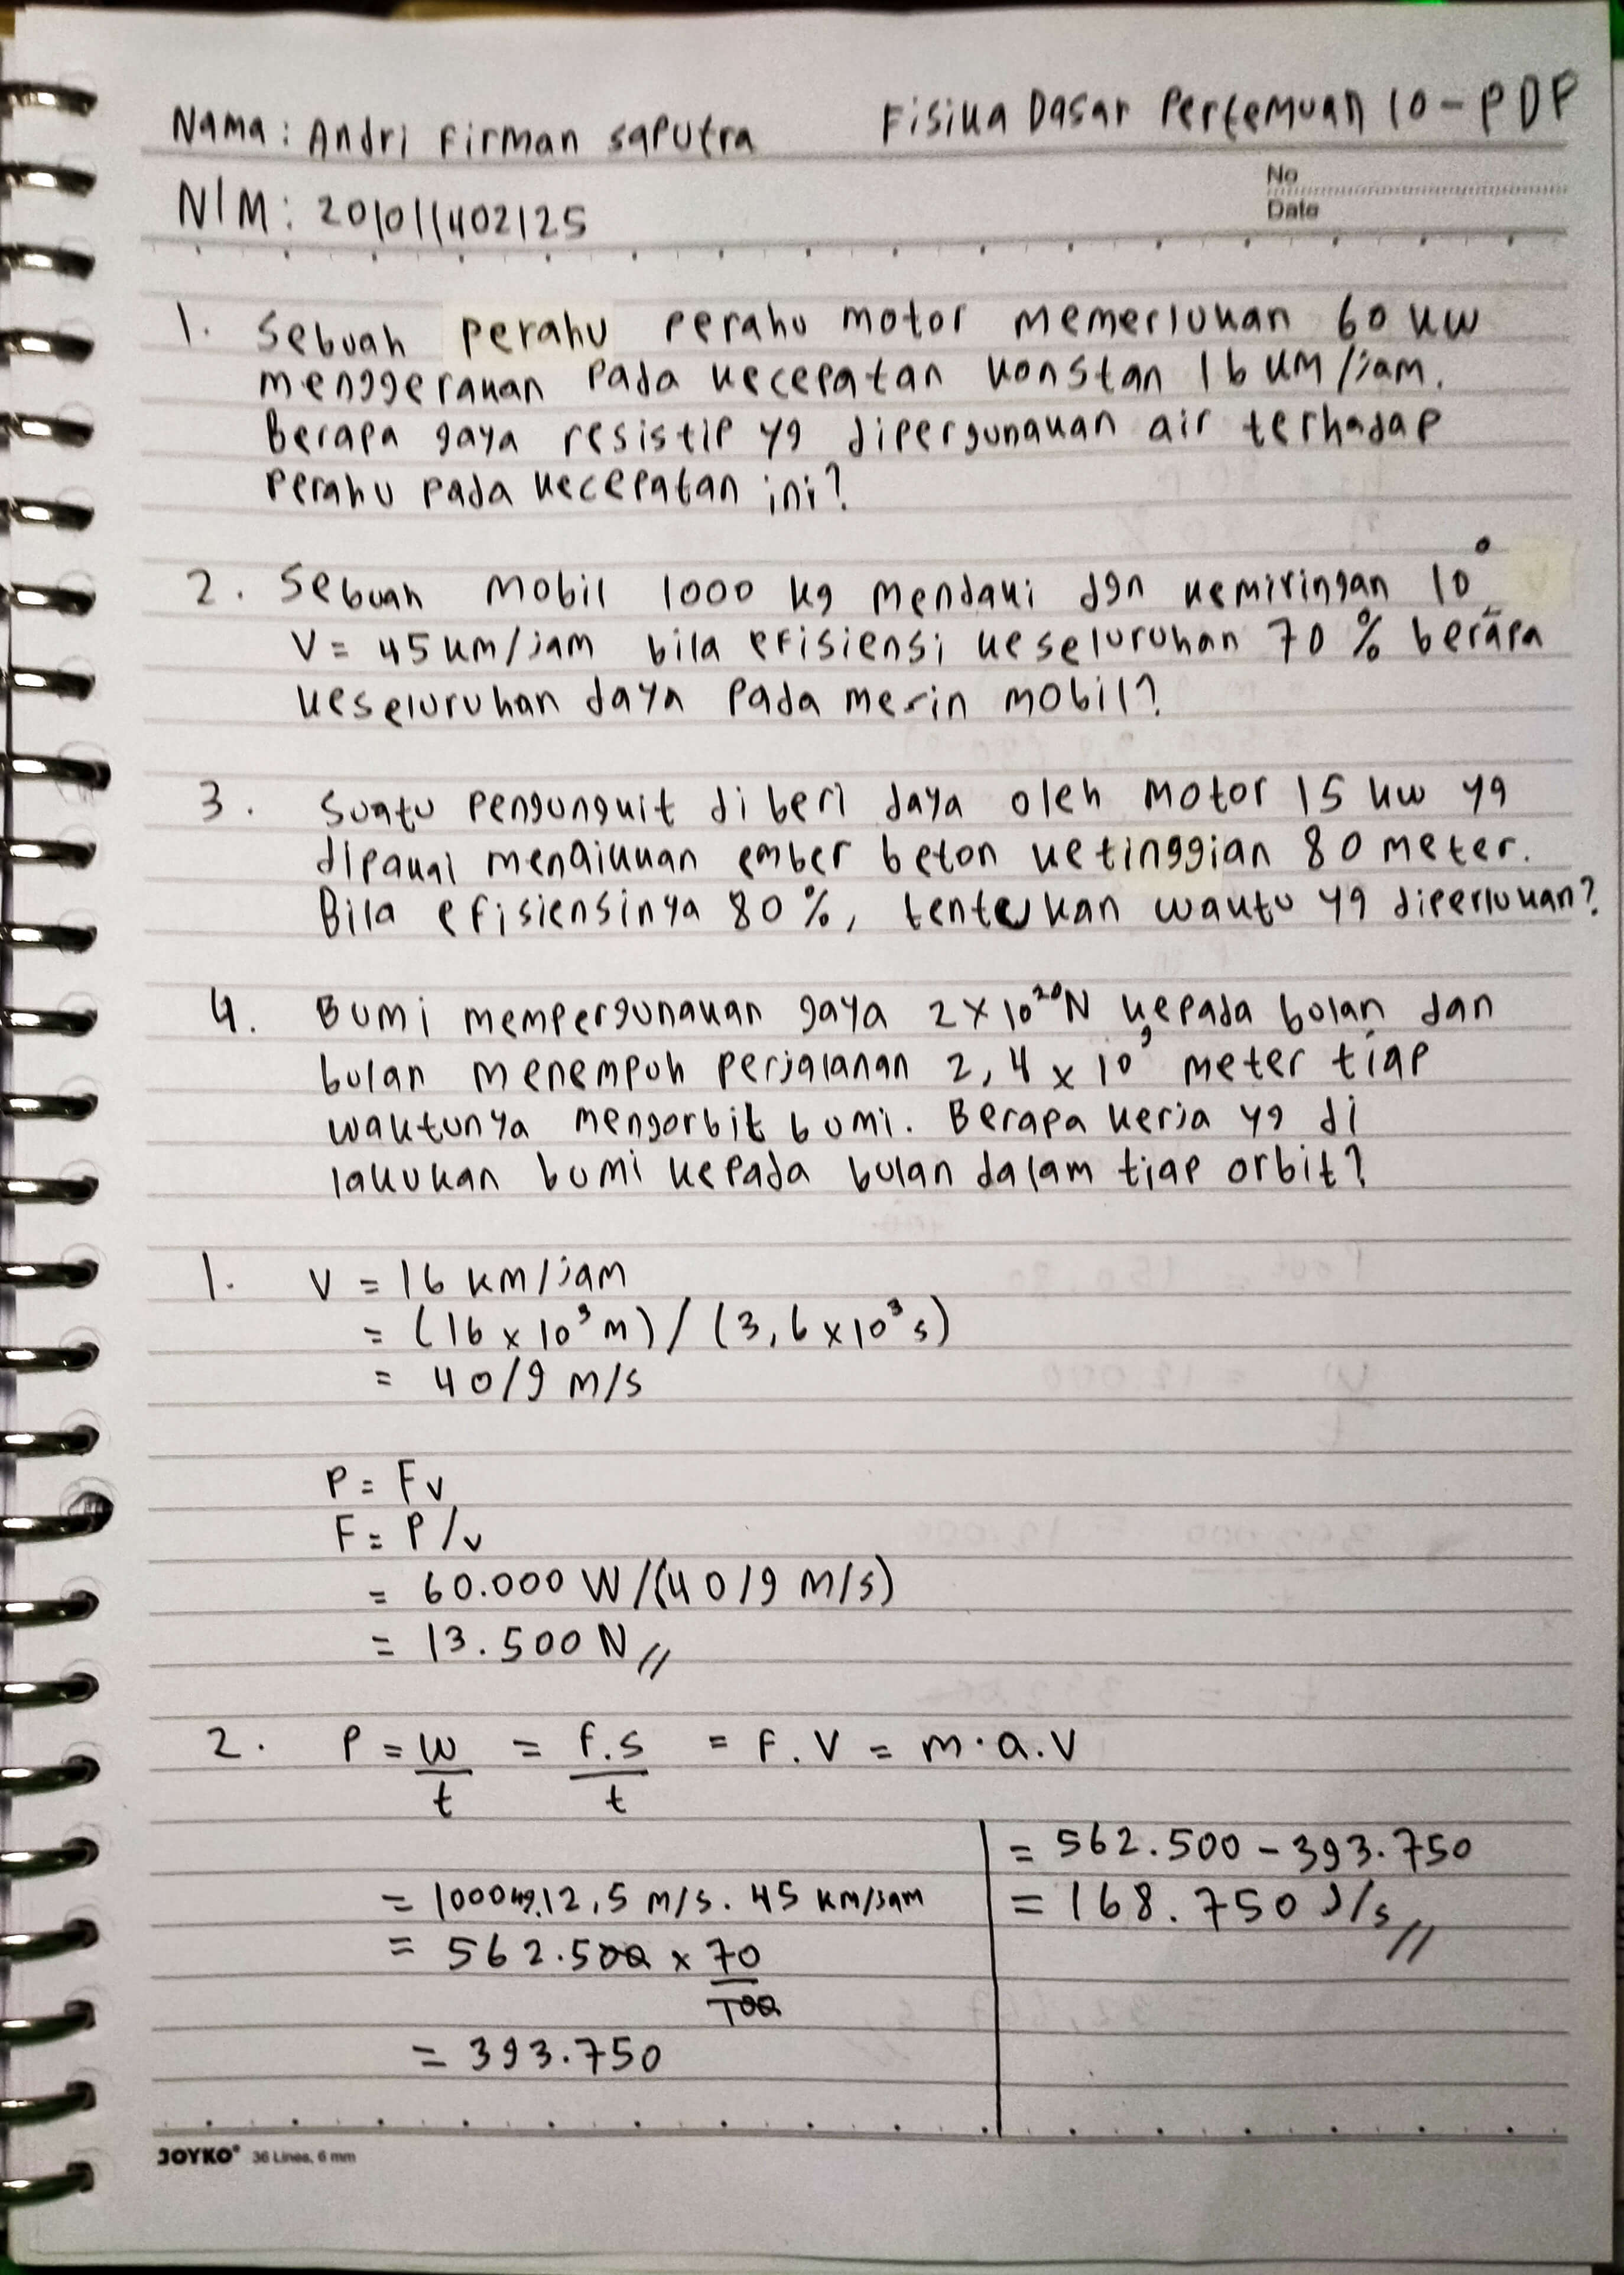 Nama : Andri Firman Saputra
Fisika Dasar Pertemuan 10 - PDP
NIM : 201011402125
No
Date
1. Sebuah perahu perahu motor memerlukan 60 kw
menggerakan pada kecepatan konstan 16 km/jam.
Berapa gaya resistif yg dipergunakan air terhadap
perahu pada kecepatan ini?
2. Sebuah mobil 1000 kg mendaki dgn kemiringan 10°
V = 45 km/jam bila efisiensi keseluruhan 70 % berapa
keseluruhan daya pada mesin mobil?
3. Suatu pengungkit di beri daya oleh motor 15 kw yg
dipakai menaikkan ember beton ketinggian 80 meter.
Bila efisiensinya 80 %, tentukan waktu yg diperlukan?
4. Bumi mempergunakan gaya 2 x 10²⁰ N kepada bulan dan
bulan menempuh perjalanan 2,4 x 10⁹ meter tiap
waktunya mengorbit bumi. Berapa kerja yg di
lakukan bumi kepada bulan dalam tiap orbit?
1. V = 16 km/jam
= (16 x 10³ m) / (3,6 x 10³ s)
= 40/9 m/s
P = Fv
F = P/v
= 60.000 W/(40/9 m/s)
= 13.500 N //
2. P = W/t = f.s/t = F.V = m.a.V
= 1000 kg.12,5 m/s. 45 km/jam
= 562.500 x 70/100
= 393.750
= 562.500 - 393.750
= 168.750 J/s //
JOYKO® 36 Lines, 6 mm